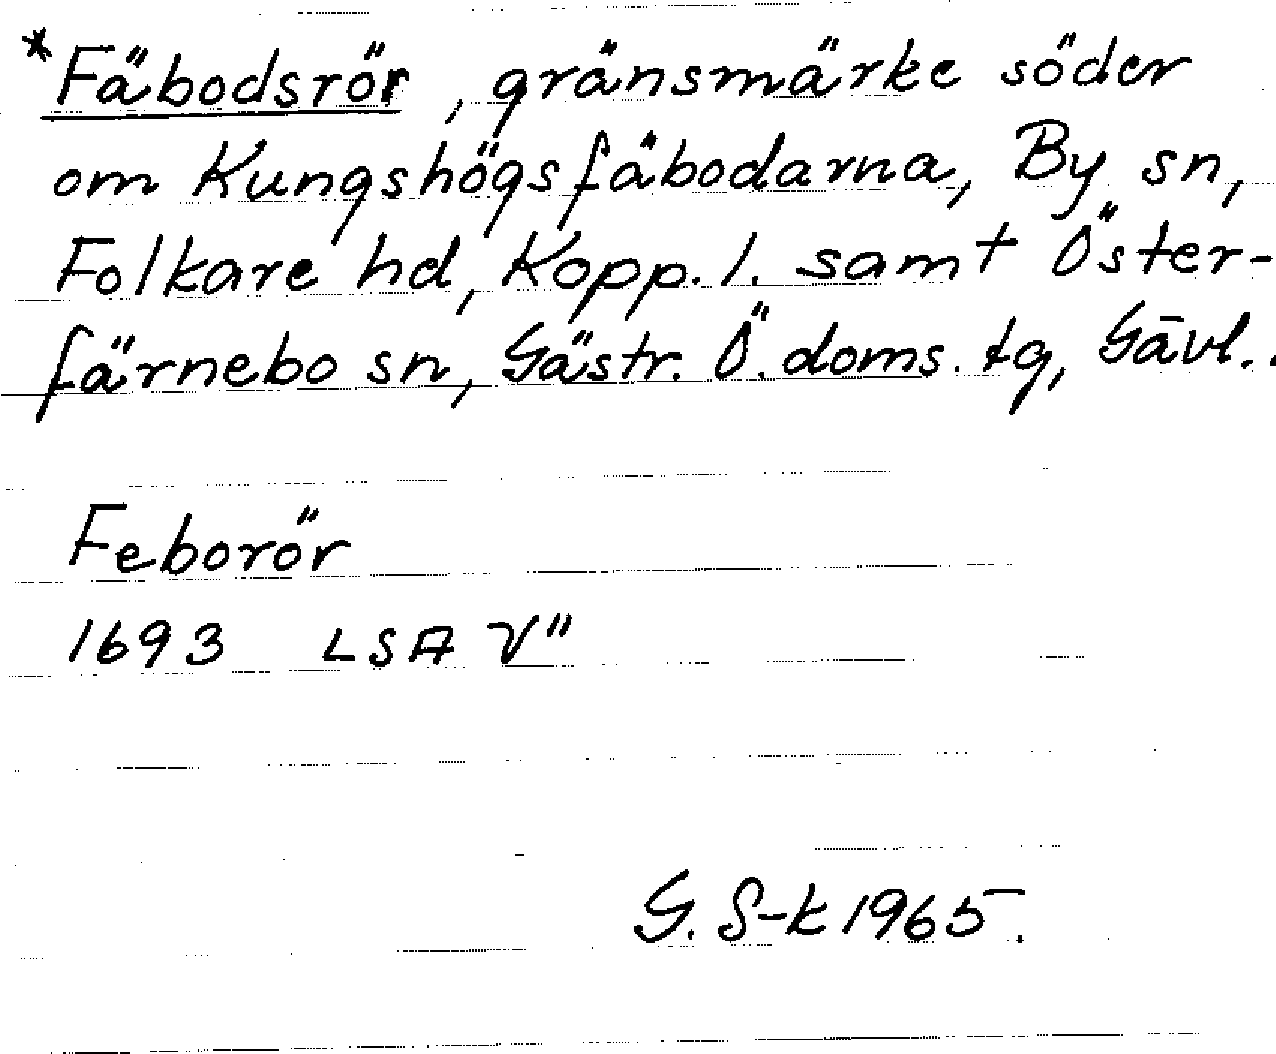 *Fäbodsrör, gränsmärke söder
om Kungshögsfäbodarna, By sn,
Folkare hd, Kopp. l. samt Öster-
färnebo sn, Gästr. Ö. doms. tg, Gävl..
Feborör
1693 LSA V"
G. S-k 1965.